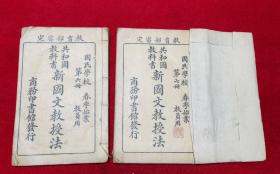 教育部審定
國民學校 春季始業
第六冊 教員用
共和國教科書
新國文教授法
商務印書館發行
教育部審定
國民學校 春季始業
第七冊 教員用
共和國教科書
新國文教授法
商務印書館發行